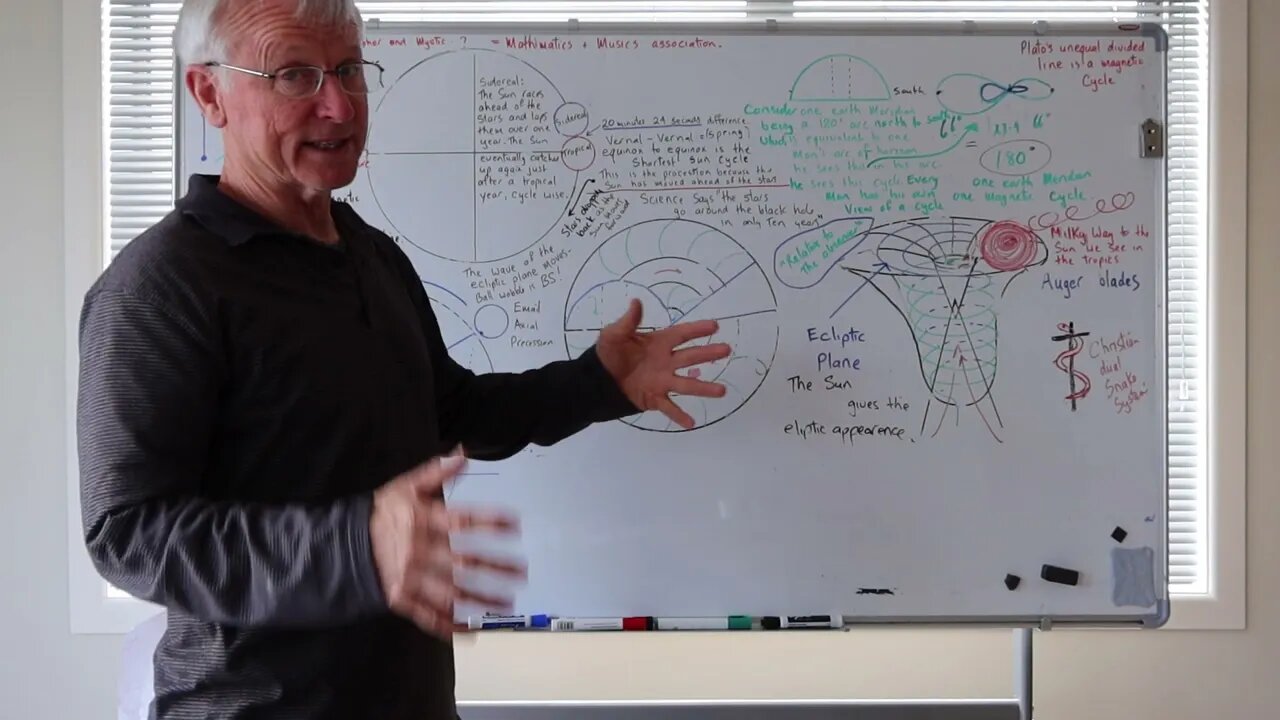 and Mystic ? = Mathematics + Musics association.
Sidereal:
The Sun races
ahead of the
Stars and laps
them over one
year. The Sun
eventually catches
up again just
after a tropical
year, Cycle wise.
Sidereal
Tropical
20 minutes 24 seconds difference
Vernal - Vernal (Spring)
equinox to equinox is the
Shortest Sun Cycle
This is the procession because the
Sun has moved ahead of the stars
Science Says "the stars
go around the black hole
in only Ten years"
The Wave of the
ecliptic plane moves.
Ball wobble is BS!
Axial
Precession
South
Consider one earth Meridian
being a 120° arc north to south
which is equivalent to one
Man's arc of horizon
He sees this in his arc.
he sees this cycle Every
Man has his own
View of a cycle
=
180°
one earth Meridian
one Magnetic Cycle
Plato's unequal divided
line is a magnetic
Cycle
"Relative to
The observer"
Milky Way to the
Sun we see in
the Tropics
Auger blades
Ecliptic
Plane
The Sun
gives the
eliptic appearence.
Christian
dual
Snake
System